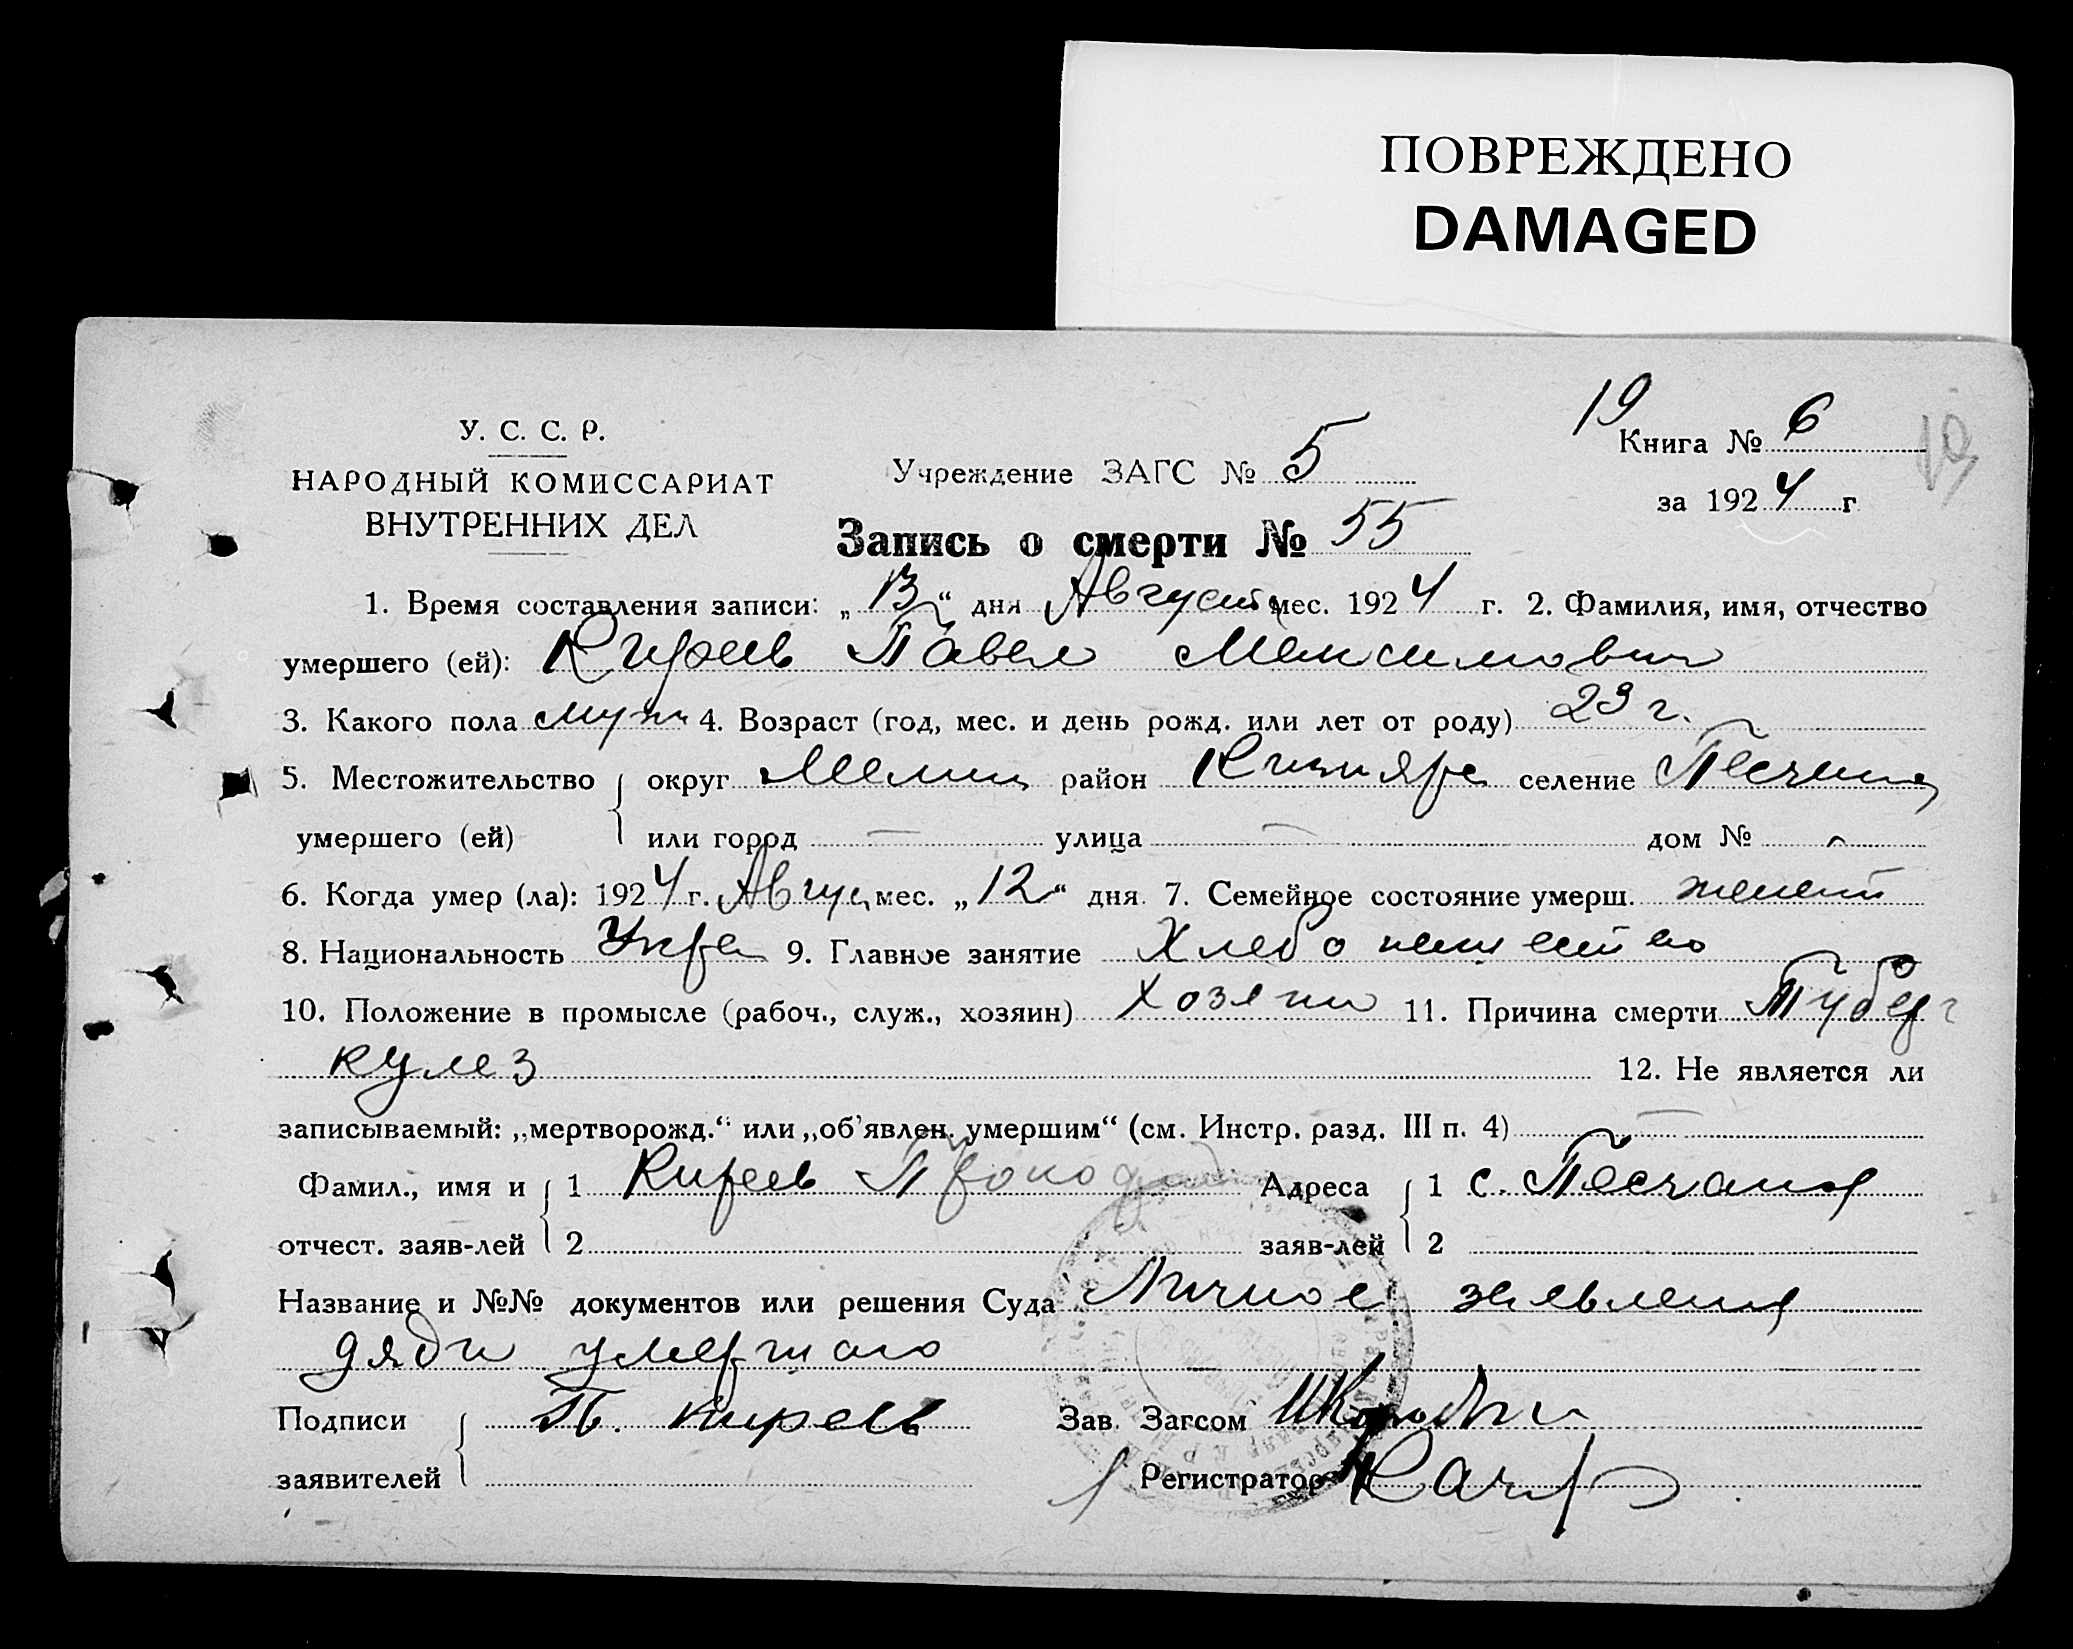 ПОВРЕЖДЕНО
DAMAGED
19
У. С. С. Р.
НАРОДНЫЙ КОМИССАРИАТ
ВНУТРЕННИХ ДЕЛ
Учреждение ЗАГС № 5
Книга № 6
19
за 1924 г
Запись о смерти № 55
1. Время составления записи: „13“ дня Август мес. 1924 г. 2. Фамилия, имя, отчество
умершего (ей): Киреев Павел Максимович
3. Какого пола муж 4. Возраст (год, мес. и день рожд. или лет от роду) 23 г.
5. Местожительство округ Мелит район Кизияр селение Песчаная
умершего (ей) или город — улица — дом № -
6. Когда умер (ла): 1924 г. Август мес. „12“ дня 7. Семейное состояние умерш. женат
8. Национальность Укра 9. Главное занятие Хлебопашество
10. Положение в промысле (рабоч., служ., хозяин) хозяин 11. Причина смерти Тубер
кулез 12. Не является ли
записываемый: „мертворожд.“ или „об'явлен. умершим“ (см. Инстр. разд. III п. 4) —
Фамил., имя и 1 Киреев Адреса 1 с. Песчаная
отчест. заяв-лей 2 заяв-лей 2
Название и №№ документов или решения Суда Личное заявления
дяди умершаго
Подписи П. Киреев Зав. Загсом
заявителей Регистратор